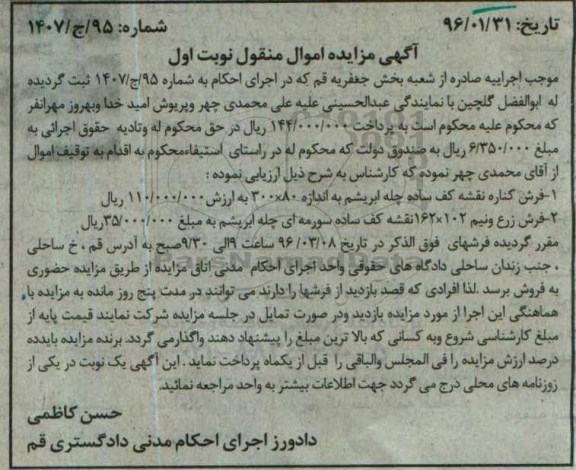 تاریخ: ۹۶/۰۱/۳۱
شماره: ۹۵/ج/۱۴۰۷
آگهی مزایده اموال منقول نوبت اول
موجب اجراییه صادره از شعبه بخش جعفریه قم که در اجرای احکام به شماره ۹۵/ج/۱۴۰۷ ثبت گردیده
له ابوالفضل گلچین با نمایندگی عبدالحسینی علیه علی محمدی چهر وپریوش امید خدا وبهروز مهرانفر
که محکوم علیه محکوم است به پرداخت ۱۴۴/۰۰۰/۰۰۰ ریال در حق محکوم له وتادیه حقوق اجرائی به
مبلغ ۶/۳۵۰/۰۰۰ ریال به صندوق دولت که محکوم له در راستای استیفاءمحکوم به اقدام به توقیف اموال
از آقای محمدی چهر نموده که کارشناس به شرح ذیل ارزیابی نموده :
۱-فرش کناره نقشه کف ساده چله ابریشم به اندازه ۸۰×۳۰۰ به ارزش ۱۱۰/۰۰۰/۰۰۰ ریال
۲-فرش زرع ونیم ۱۰۲×۱۶۲نقشه کف ساده سورمه ای چله ابریشم به مبلغ ۳۵/۰۰۰/۰۰۰ریال
مقرر گردیده فرشهای فوق الذکر در تاریخ ۹۶/۰۳/۰۸ ساعت ۹الی ۹/۳۰صبح به آدرس قم ، خ ساحلی
، جنب زندان ساحلی دادگاه های حقوقی واحد اجرای احکام مدنی اتاق مزایده از طریق مزایده حضوری
به فروش برسد .لذا افرادی که قصد بازدید از فرشها را دارند می توانند در مدت پنج روز مانده به مزایده با
هماهنگی این اجرا از مورد مزایده بازدید ودر صورت تمایل در جلسه مزایده شرکت نمایند قیمت پایه از
مبلغ کارشناسی شروع وبه کسانی که بالا ترین مبلغ را پیشنهاد دهند واگذارمی گردد. برنده مزایده بایدده
درصد ارزش مزایده را فی المجلس والباقی را قبل از یکماه پرداخت نماید . این آگهی یک نوبت در یکی از
روزنامه های محلی درج می گردد جهت اطلاعات بیشتر به واحد مراجعه نمائید.
حسن کاظمی
دادورز اجرای احکام مدنی دادگستری قم